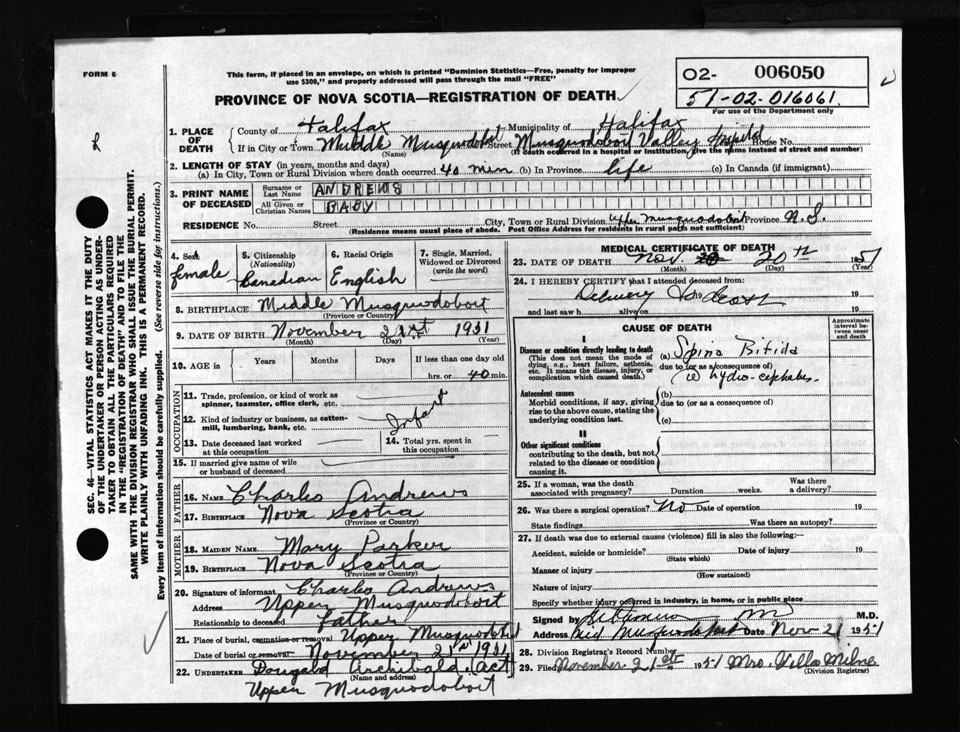 FORM 6
This form, if placed in an envelope, on which is printed "Dominion Statistics—Free, penalty for improper
use $300," and properly addressed will pass through the mail "FREE"
PROVINCE OF NOVA SCOTIA—REGISTRATION OF DEATH
O2- 006050
51-02-016061
For use of the Department only
1. PLACE OF DEATH
County of Halifax Municipality of Halifax
If in City or Town Middle Musquodoboit Street Musquodoboit Valley Hospital House No.
(Name) (If death occurred in a hospital or institution, give the name instead of street and number)
2. LENGTH OF STAY (in years, months and days)
(a) In City, Town or Rural Division where death occurred 40 min (b) In Province life (c) In Canada (if immigrant)
3. PRINT NAME OF DECEASED
Surname or Last Name ANDREWS
All Given or Christian Names BABY
RESIDENCE No. Street City, Town or Rural Division Upper Musquodoboit Province N.S.
(Residence means usual place of abode. Post Office Address for residents in rural parts not sufficient)
4. Sex female
5. Citizenship (Nationality) Canadian
6. Racial Origin English
7. Single, Married, Widowed or Divorced (write the word)
8. BIRTHPLACE Middle Musquodoboit
(Province or Country)
9. DATE OF BIRTH November 21st 1951
(Month) (Day) (Year)
10. AGE in Years Months Days If less than one day old
hrs. or 40 min.
OCCUPATION
11. Trade, profession, or kind of work as spinner, teamster, office clerk, etc.
12. Kind of industry or business, as cotton-mill, lumbering, bank, etc. Infant
13. Date deceased last worked at this occupation
14. Total yrs. spent in this occupation
15. If married give name of wife or husband of deceased
FATHER
16. NAME Charles Andrews
17. BIRTHPLACE Nova Scotia
(Province or Country)
MOTHER
18. MAIDEN NAME Mary Parker
19. BIRTHPLACE Nova Scotia
(Province or Country)
20. Signature of informant Charles Andrews
Address Upper Musquodoboit
Relationship to deceased Father
21. Place of burial, cremation or removal Upper Musquodoboit
Date of burial or removal November 21st 1951
22. UNDERTAKER Dougald Archibald (Act)
(Name and address)
Upper Musquodoboit
MEDICAL CERTIFICATE OF DEATH
23. DATE OF DEATH Nov. 20th 1951
(Month) (Day) (Year)
24. I HEREBY CERTIFY that I attended deceased from:
Delivery 19
and last saw h alive on 19
CAUSE OF DEATH
Approximate interval between onset and death
I
Disease or condition directly leading to death (a) Spina Bifida
(This does not mean the mode of dying, e.g., heart failure, asthenia, etc. It means the disease, injury, or complication which caused death.)
due to (or as a consequence of)
hydro-cephalus.
Antecedent causes
Morbid conditions, if any, giving rise to the above cause, stating the underlying condition last.
(b)
due to (or as a consequence of)
(c)
II
Other significant conditions
contributing to the death, but not related to the disease or condition causing it.
25. If a woman, was the death associated with pregnancy? Duration weeks. Was there a delivery?
26. Was there a surgical operation? No Date of operation 19
State findings Was there an autopsy?
27. If death was due to external causes (violence) fill in also the following:—
Accident, suicide or homicide? Date of injury 19
(State which)
Manner of injury
(How sustained)
Nature of injury
Specify whether injury occurred in industry, in home, or in public place
Signed by M.D.
Address Mid Musquodoboit Date Nov 21 1951
28. Division Registrar's Record Number
29. Filed November 21st 1951 Mrs. Villa Milne
(Division Registrar)
SEC. 46—VITAL STATISTICS ACT MAKES IT THE DUTY
OF THE UNDERTAKER OR PERSON ACTING AS UNDER-
TAKER TO OBTAIN ALL THE PARTICULARS REQUIRED
IN THE "REGISTRATION OF DEATH" AND TO FILE THE
SAME WITH THE DIVISION REGISTRAR WHO SHALL ISSUE THE BURIAL PERMIT.
WRITE PLAINLY WITH UNFADING INK. THIS IS A PERMANENT RECORD.
Every item of information should be carefully supplied. (See reverse side for instructions.)